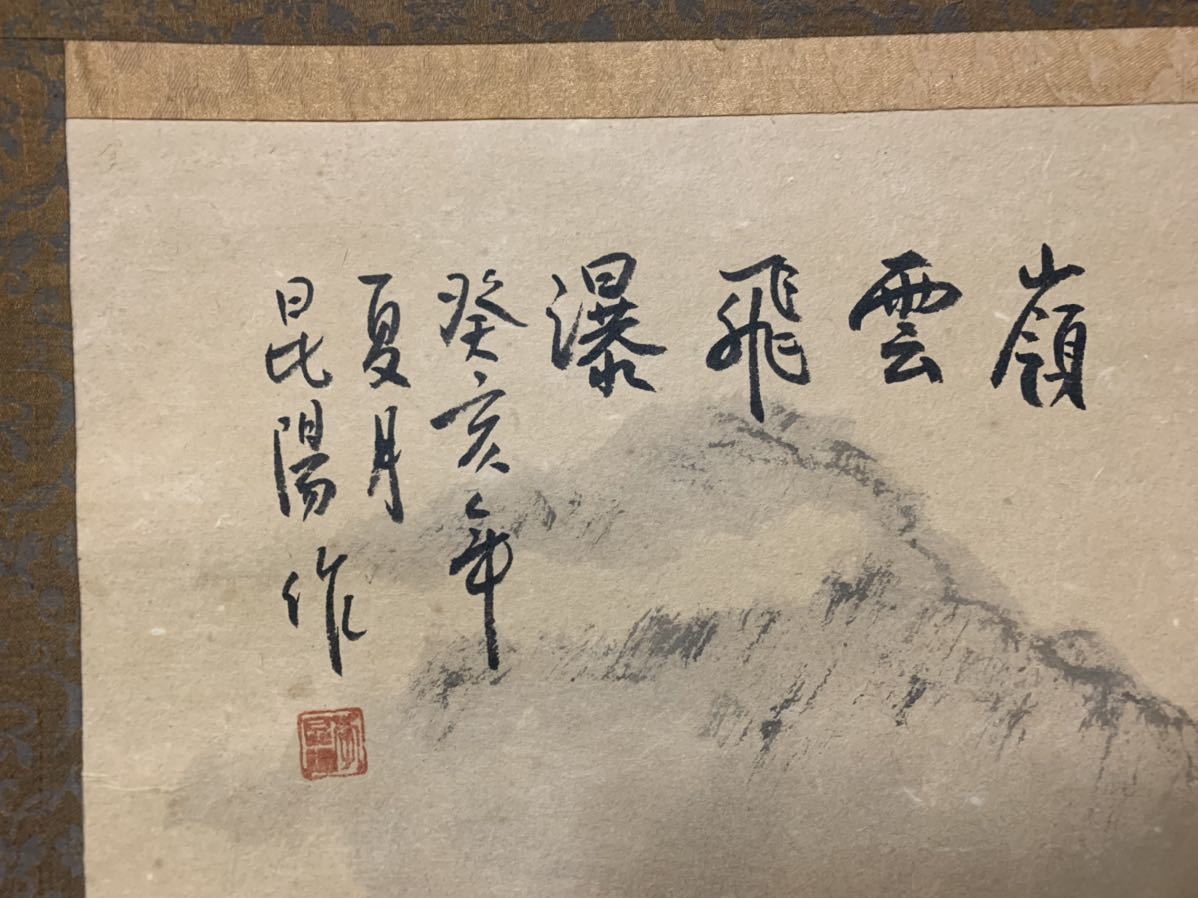 嶺雲飛瀑
癸亥年
夏月
昆陽作